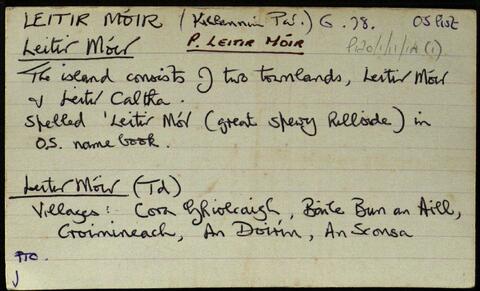 LEITIR MÓIR (Killannin Par.) G. 78. OS list
Leitir Móir P. LEITIR MÓIR P120/1/1/14 (1)
The island consists of two townlands, Leitir Móir
& Leitir Caltha.
spelled 'Leitir Mór (great spewy hillside) in
O.S. name book.
Leitir Móir (Td)
Villages: Cora Ghiolcaigh, Baile Bun an Aill,
Croimineach, An Doirín, An Sconsa
PTO.